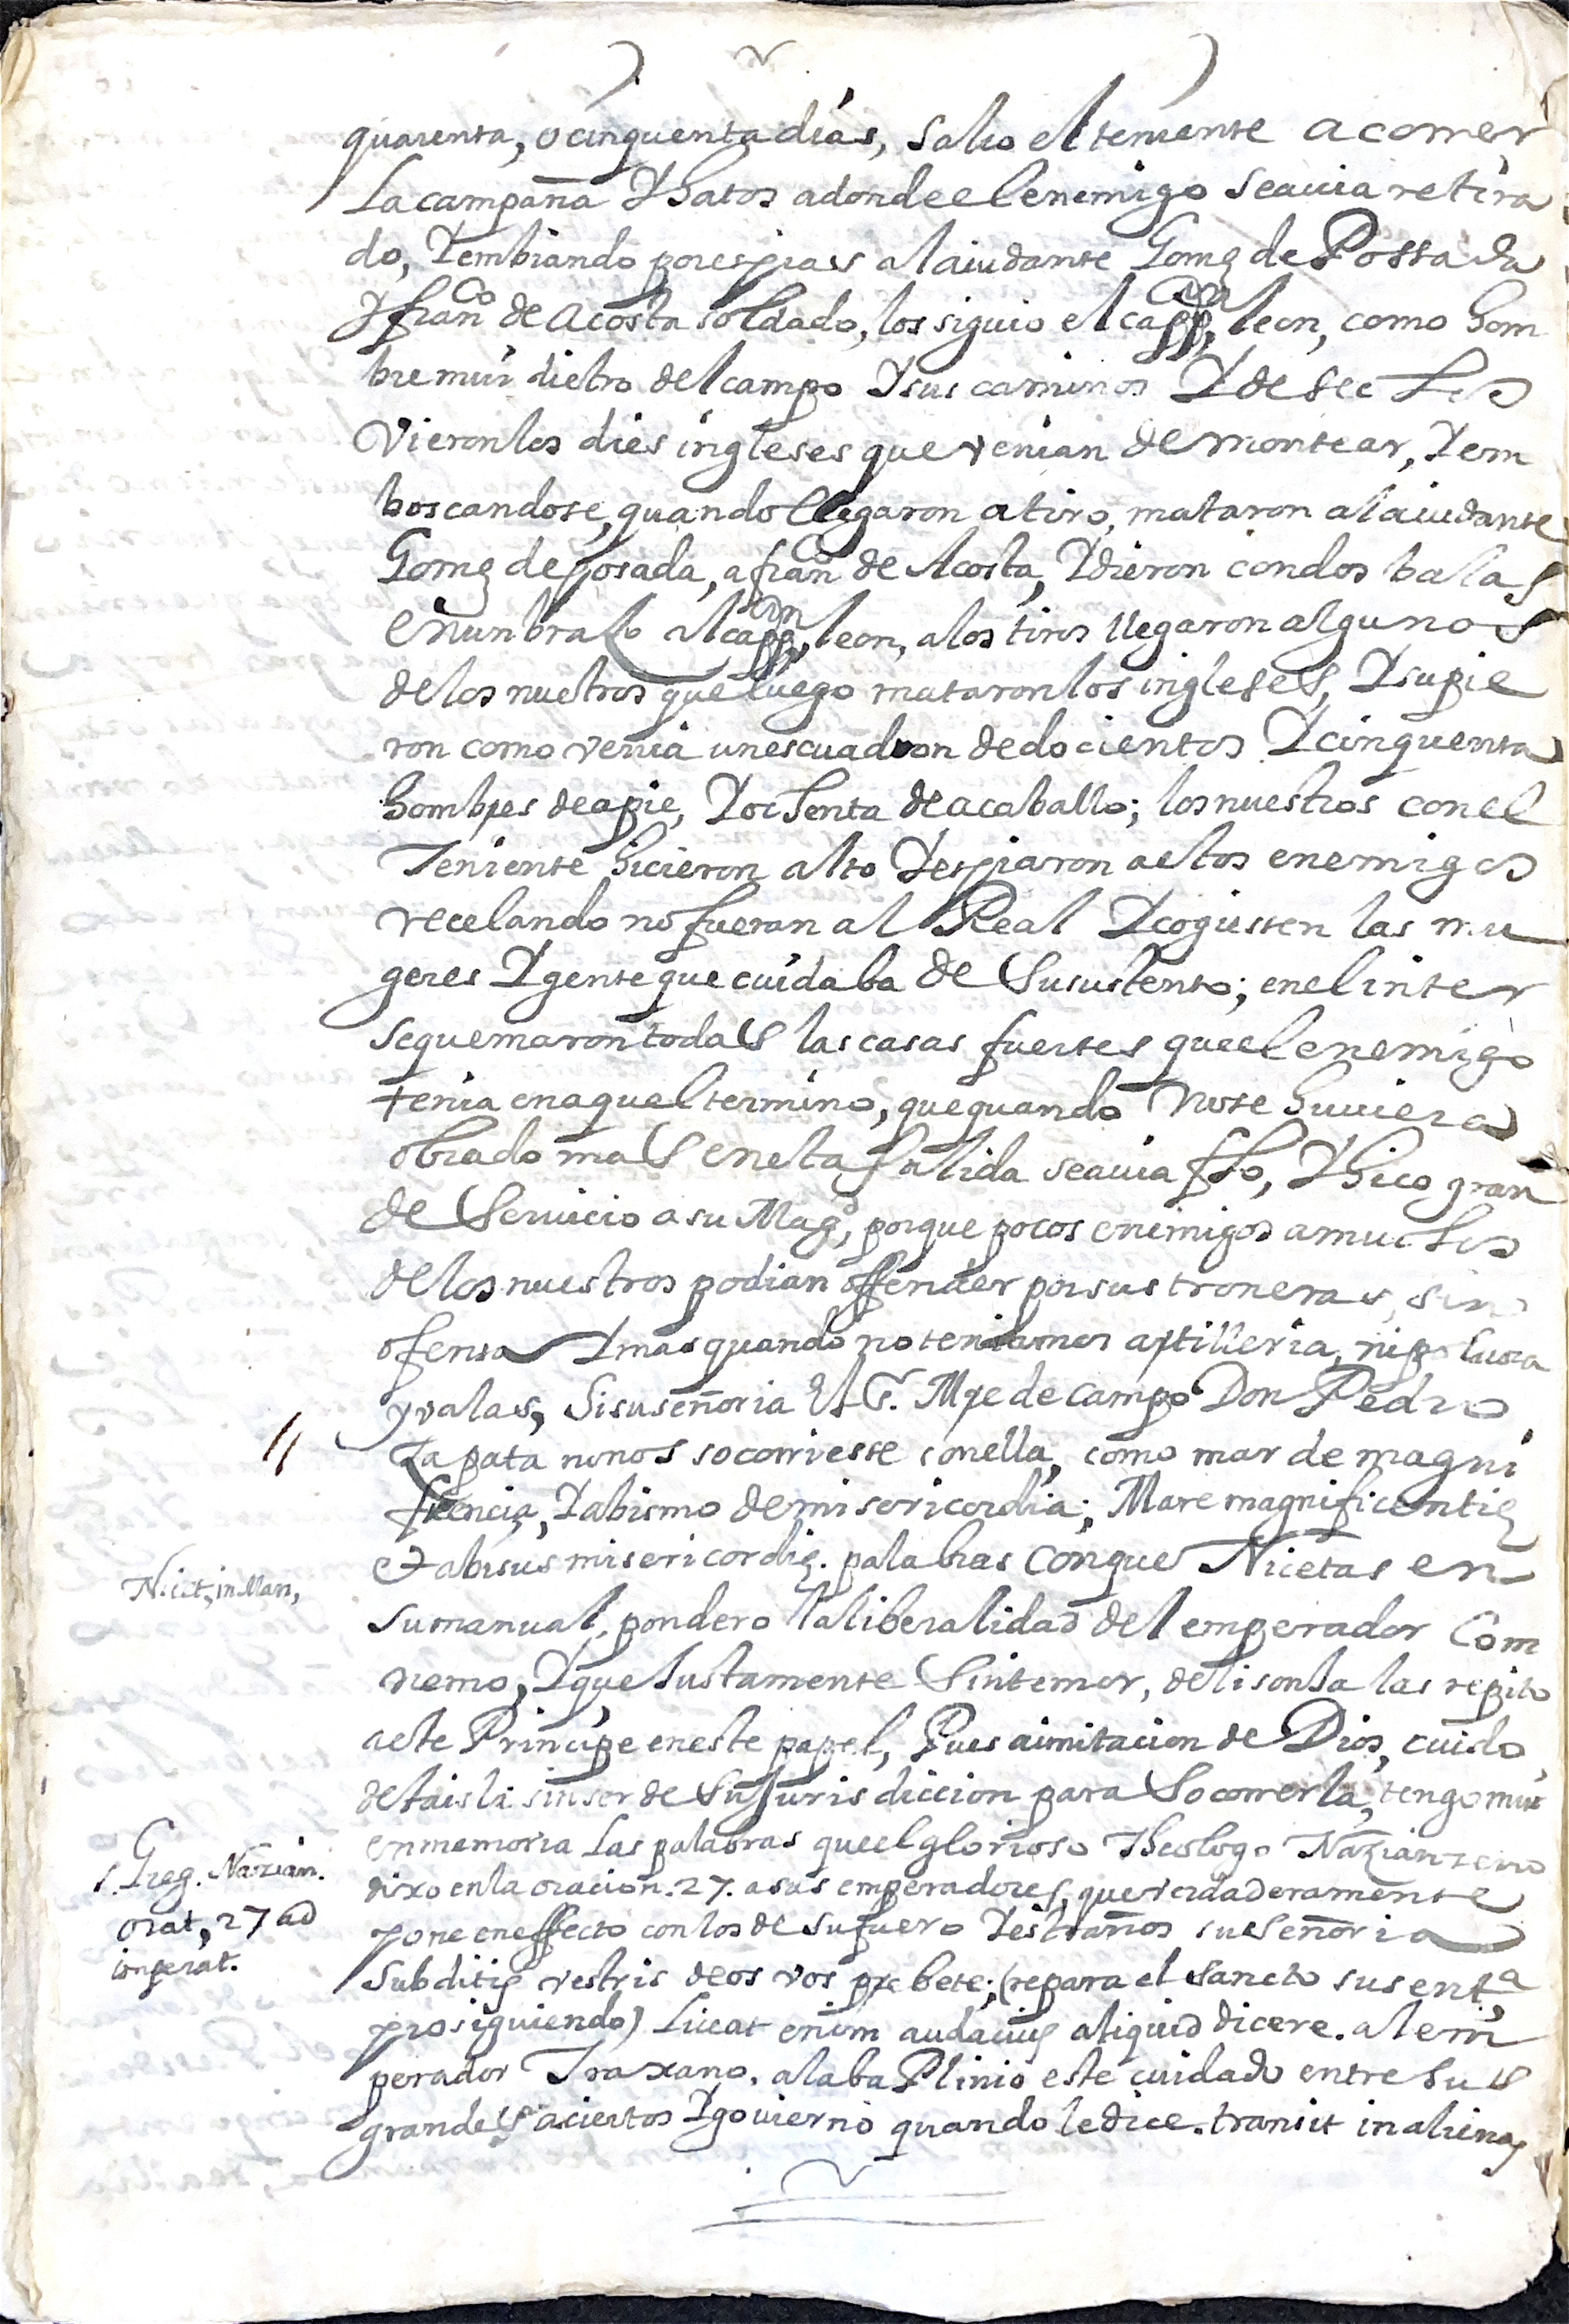 quarenta, o cinquenta dias, salio el teniente a correr
La campaña Y hatos adonde el enemigo se auia retira
do, Y embiando por espias al aiudante Gomez de Possada
Y fran.co de Acosta soldado, los siguio el capp.an leon, como hom
bre mui dietro del campo Y sus caminos Y desechos
Vieron los dies ingleses que venian de montear, Y em
boscandose, quando llegaron a tiro, mataron al aiudante
Gomez de posada, a fran.co de Acosta, Y dieron con dos balas
en un braso al capp.an leon, a los tiros llegaron algunos
de los nuetros que luego mataron los ingleses, Y supie
ron como venia un escuadron de docientos Y cinquenta
hombres de a pie, Y ochenta de a caballo; los nuestros con el
Teniente hicieron alto Y espiaron a estos enemigos
recelando no fueran al Real Y cogiessen las mu
geres Y gente que cuidaba de su sustento; en el inter
se quemaron todas las casas fuertes que el enemigo
tenia en aquel termino, que quando no se huuiera
obrado mas en esta salida se auia fho, Y hico gran
de Seruicio a su Mag.d, porque pocos enemigos a muchos
de los nuestros podian offender por sus troneras, sin
ofensa Y mas quando no teniamos artilleria, ni poluora
y valas, Si su señoria El S.r Mre de campo Don Pedro
Zapata no nos socorriesse con ella, como mar de magni
ficencia, Y abismo de misericordia; Mare magnificentię
et abisus misericordię. palabras con que Nicetas en
su manual, pondero la liberalidad del emperador Com
nemo, Y que Iustamente Sin temor, de lisonIa las repito
a este Principe en este papel, Pues a imitacion de Dios, cuido
de ta isla sin ser de su Iuris diccion para Socorrerla, tengo mui
en memoria Las palabras que el glorioso Theologo Nazianzeno
dixo en la oracion. 27. a sus emperadores, que verdaderamente
pone en effecto con los de su fuero Y estraños su Señoria
Subditis vestris deos vos prebete; (repara el sancto su sent.a
prosiguiendo) Liceat enim audacius aliquid dicere. al em
perador Traxano, alaba Plinio este cuidado entre sus
grandes aciertos Y gouierno quando le dice. transit in alienas
Nicet, in Man,
s. Greg. Nazian.
orat, 27 ad
imperat.